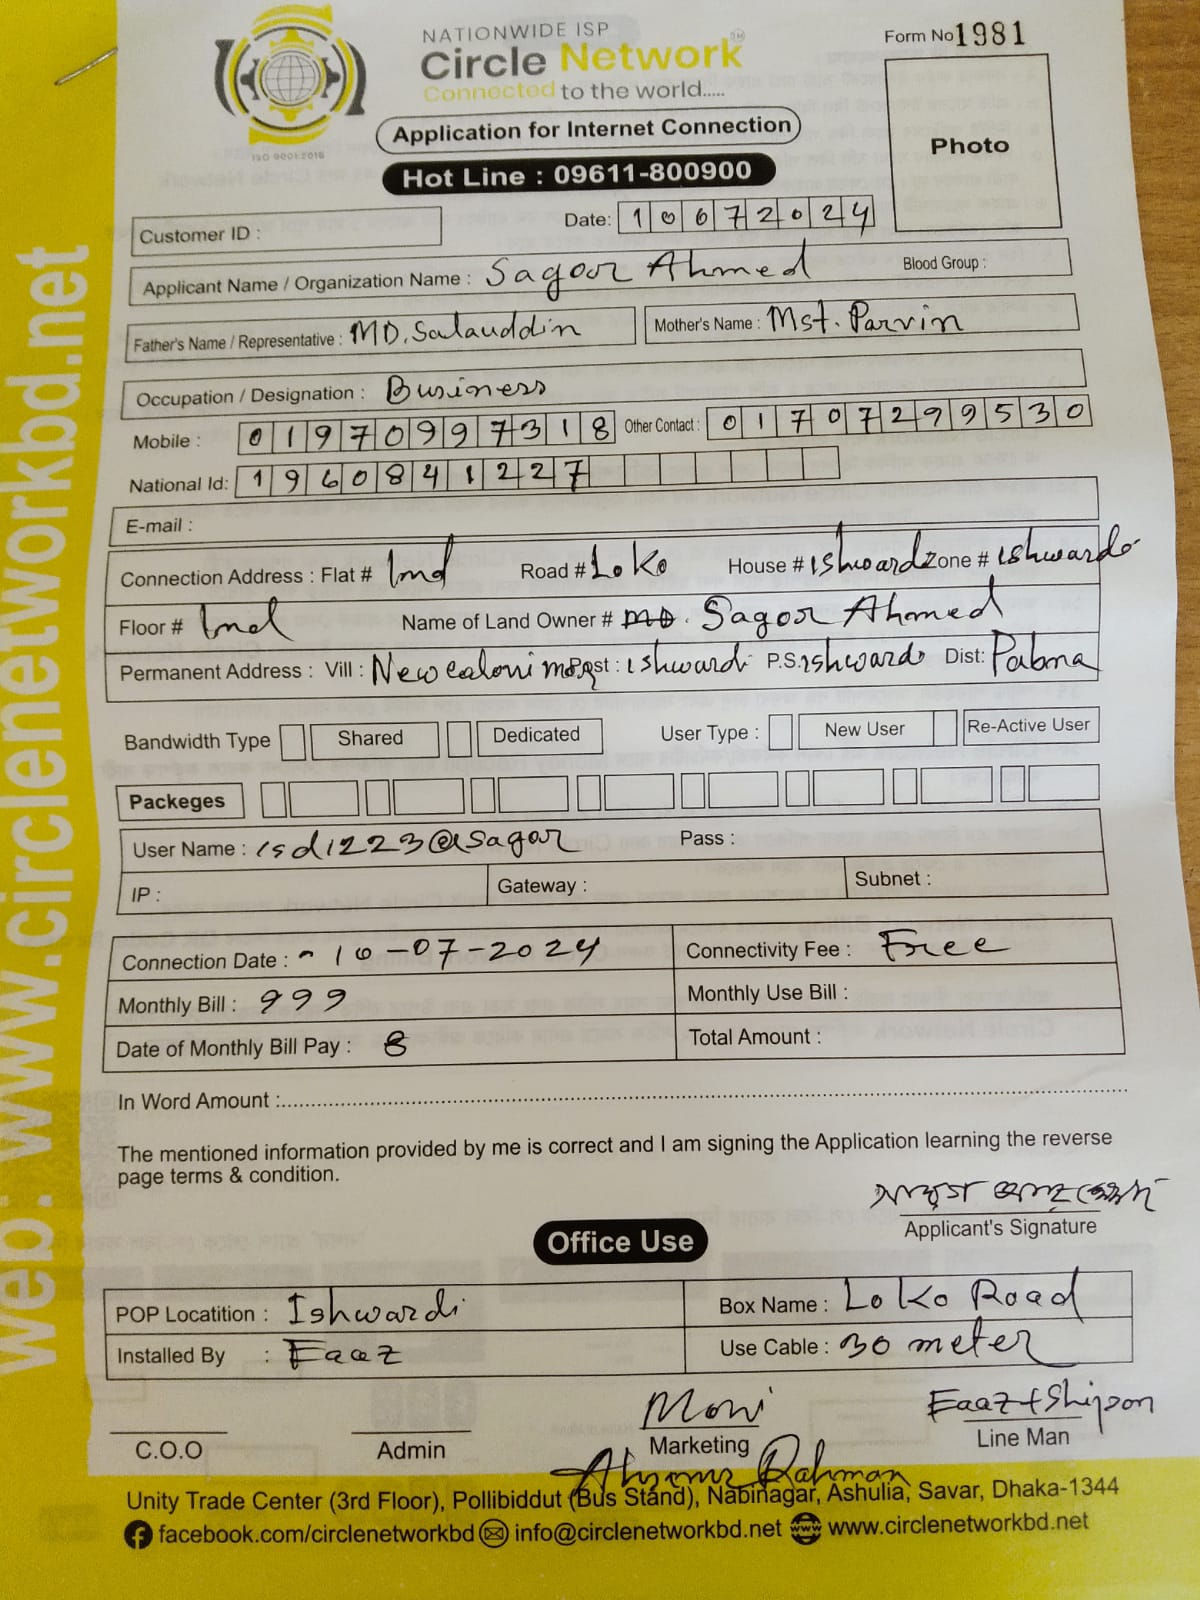 NATIONWIDE ISP
Circle Network
Connected to the world.....
ISO 9001:2015
Form No 1981
Application for Internet Connection
Hot Line : 09611-800900
Photo
Customer ID :
Date: 10072024
Applicant Name / Organization Name : Sagor Ahmed Blood Group :
Father's Name / Representative : MD. Salauddin Mother's Name : Mst. Parvin
Occupation / Designation : Business
Mobile : 01970997318 Other Contact : 01707299530
National Id: 1960841227
E-mail :
Connection Address : Flat # Ind Road # Loko House # Ishwardi Zone # Ishwardi
Floor # Ind Name of Land Owner # MD. Sagor Ahmed
Permanent Address : Vill : New coloni Post : Ishwardi P.S. Ishwardi Dist: Pabna
Bandwidth Type Shared Dedicated User Type : New User Re-Active User
Packeges
User Name : isd1223@sagor Pass :
IP : Gateway : Subnet :
Connection Date : 10-07-2024 Connectivity Fee : Free
Monthly Bill : 999 Monthly Use Bill :
Date of Monthly Bill Pay : 8 Total Amount :
In Word Amount :
The mentioned information provided by me is correct and I am signing the Application learning the reverse
page terms & condition.
Applicant's Signature
Office Use
POP Locatition : Ishwardi Box Name : Loko Road
Installed By : Faaz Use Cable : 30 meter
Moni Faaz + Shipon
C.O.O Admin Marketing Line Man
Rahman
Unity Trade Center (3rd Floor), Pollibiddut (Bus Stand), Nabinagar, Ashulia, Savar, Dhaka-1344
facebook.com/circlenetworkbd info@circlenetworkbd.net www.circlenetworkbd.net
web: www.circlenetworkbd.net